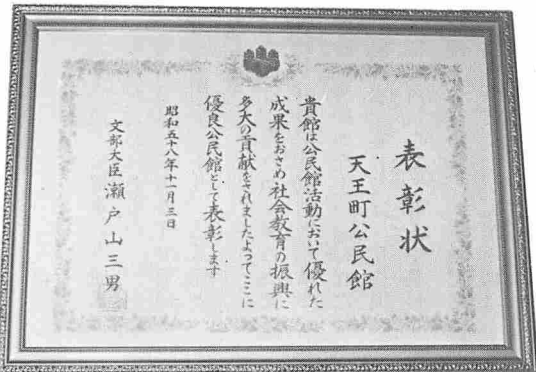 表彰状
天王町公民館
貴館は公民館活動において優れた
成果をおさめ社会教育の振興に
多大の貢献をされましたよってここに
優良公民館として表彰します
昭和五十八年十一月三日
文部大臣 瀬戸山三男